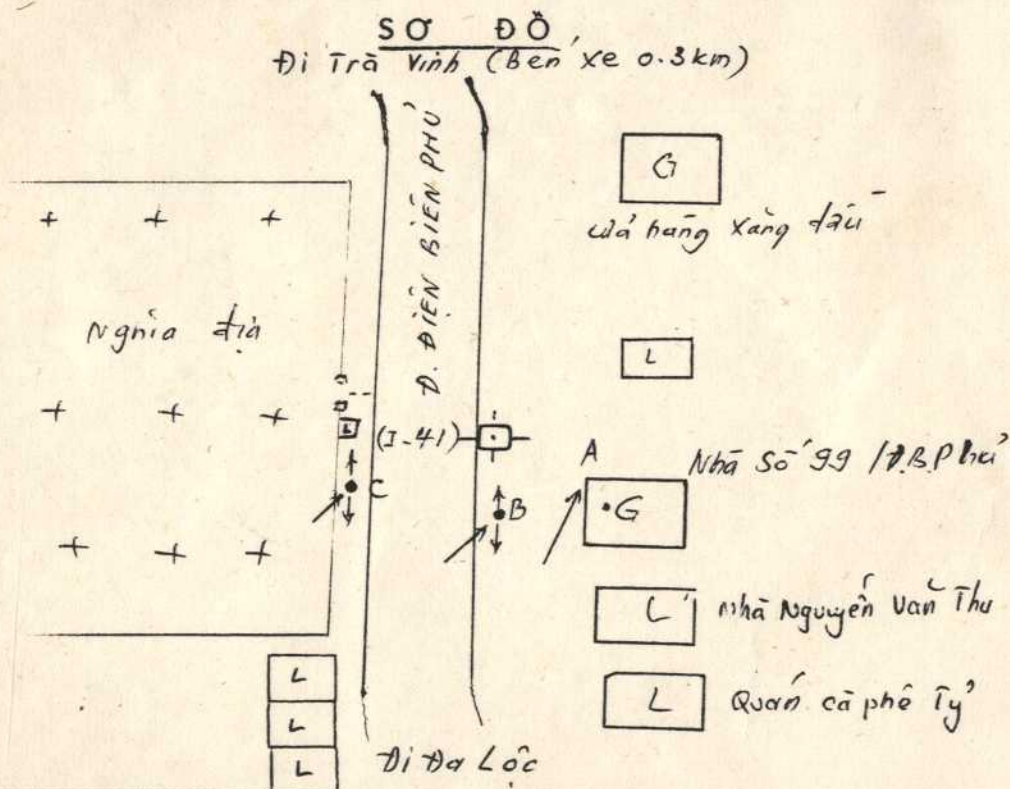 SƠ ĐỒ
Đi Trà Vinh (Bến xe 0.3km)
Đ. ĐIỆN BIÊN PHỦ
G
cửa hàng xăng dầu
Nghĩa địa
L
L
(I-41)
A
Nhà Số 99 / Đ.B.Phủ
C
B
G
L
nhà Nguyễn Văn Thu
L
L
Quán cà phê Tỷ
L
L
Đi Đa Lộc